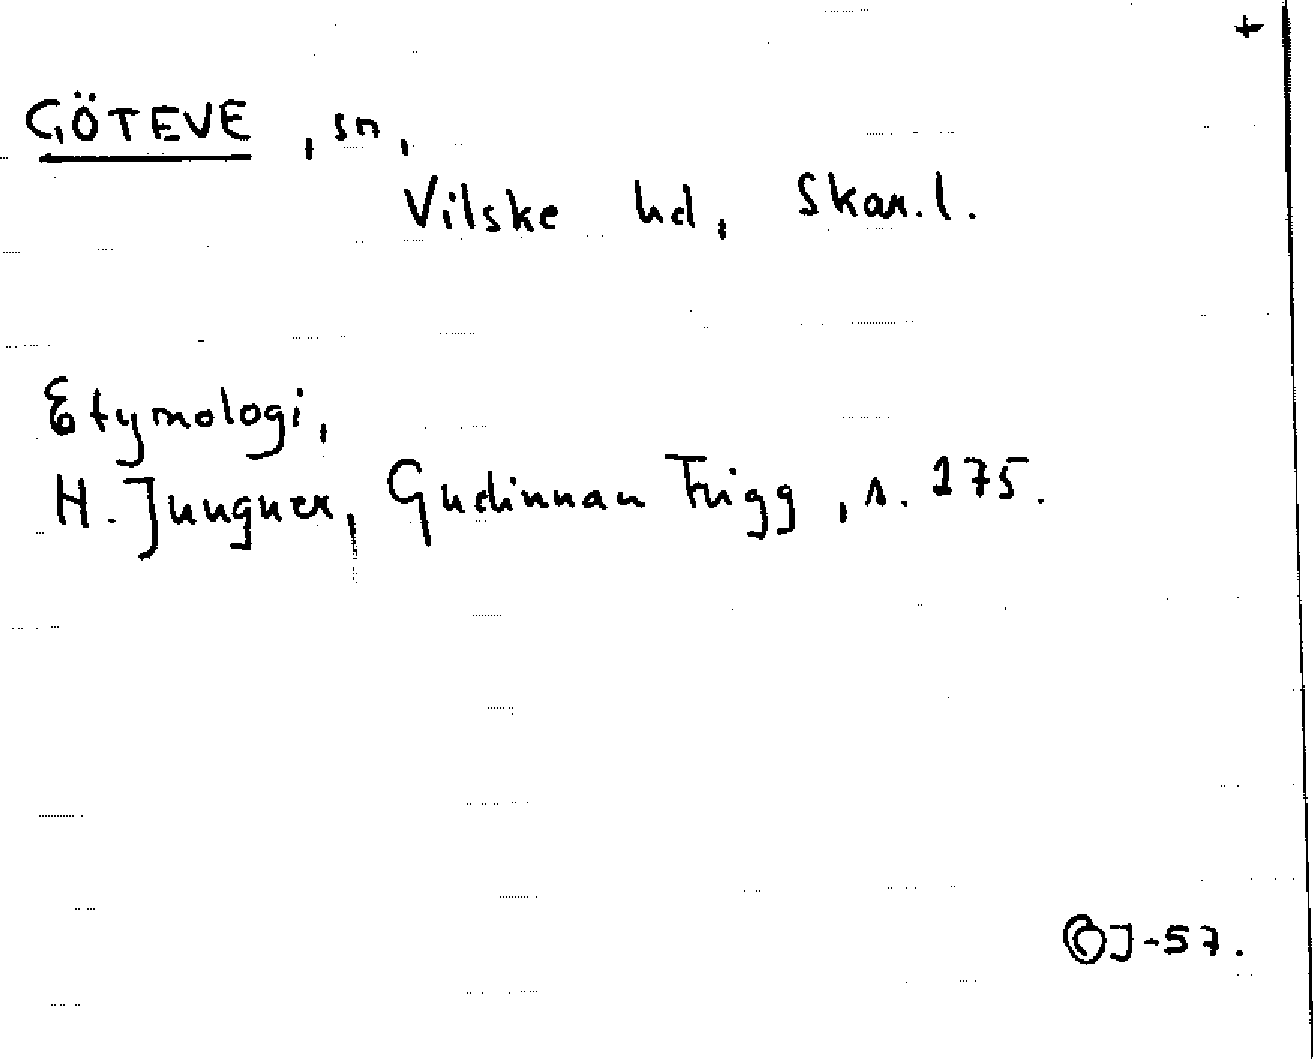 +
GÖTEVE, sn,
Vilske hd, Skar.l.
Etymologi,
H. Jungner, Gudinnan Frigg, s. 275.
J-57.